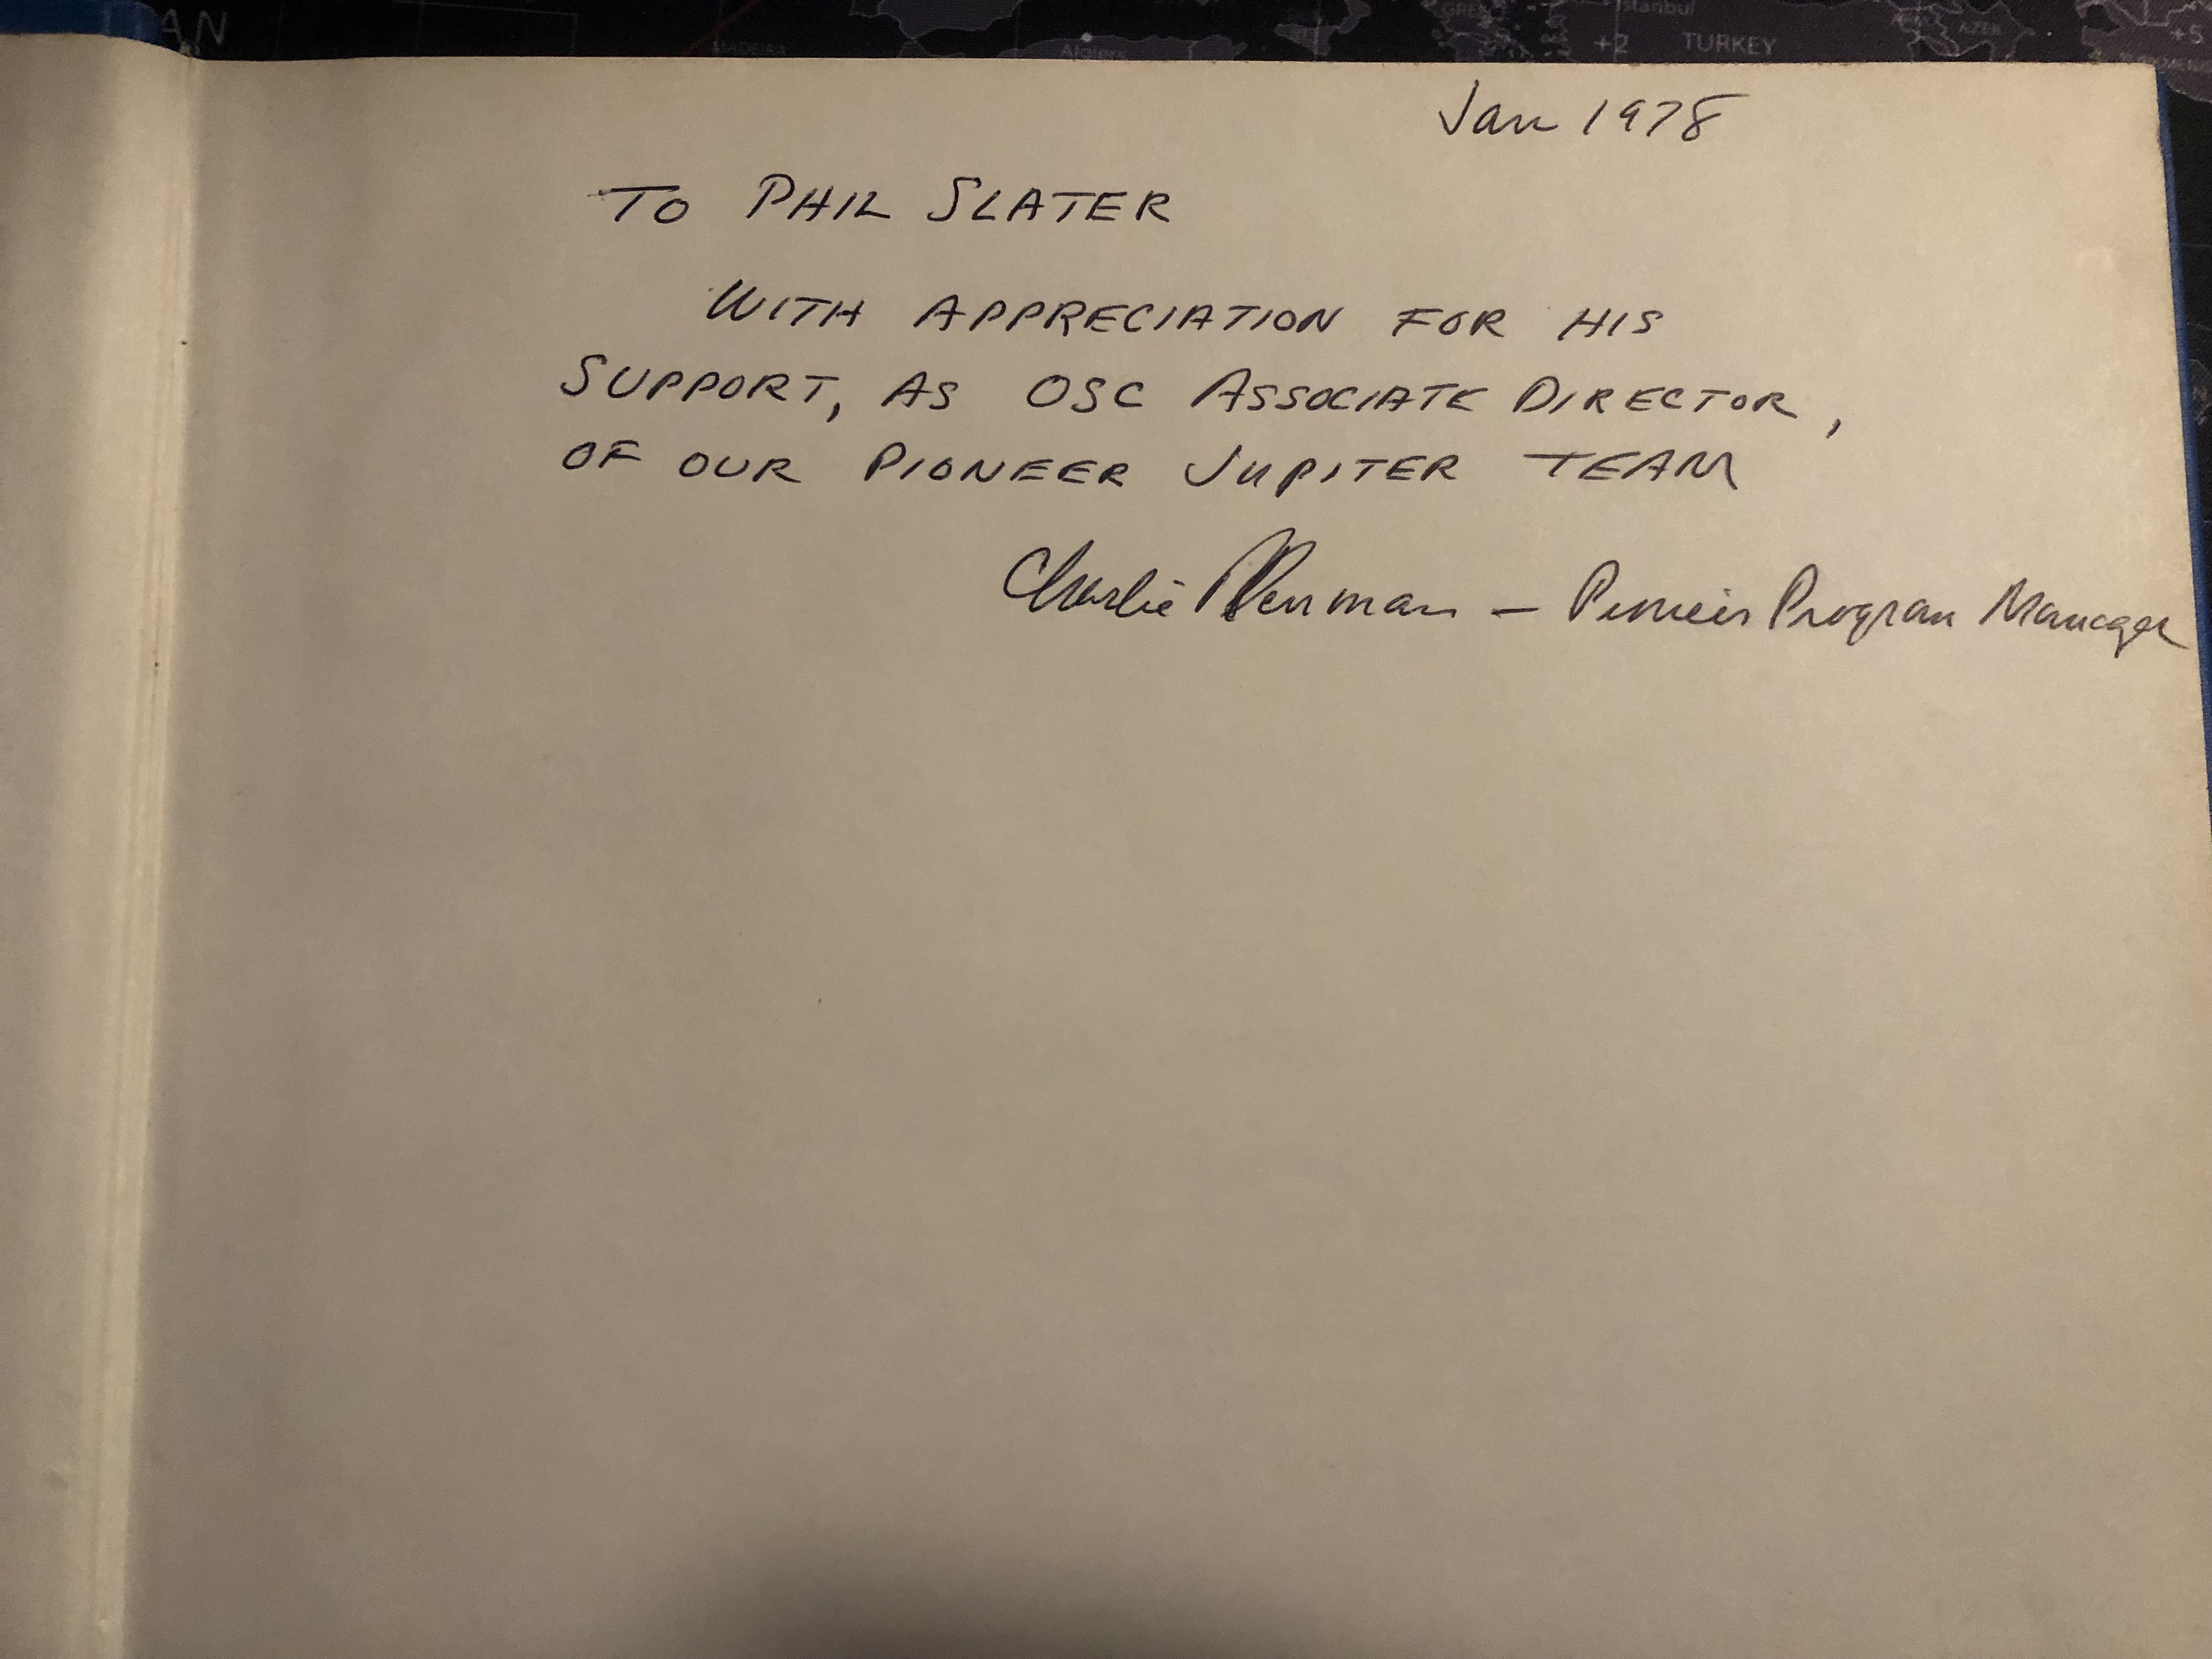 AN
MADEIRA
Algiers
Istanbul
+2 TURKEY
+5
Jan 1978
TO PHIL SLATER
WITH APPRECIATION FOR HIS
SUPPORT, AS OSC ASSOCIATE DIRECTOR,
OF OUR PIONEER JUPITER TEAM
Charlie – Pioneer Program Manager